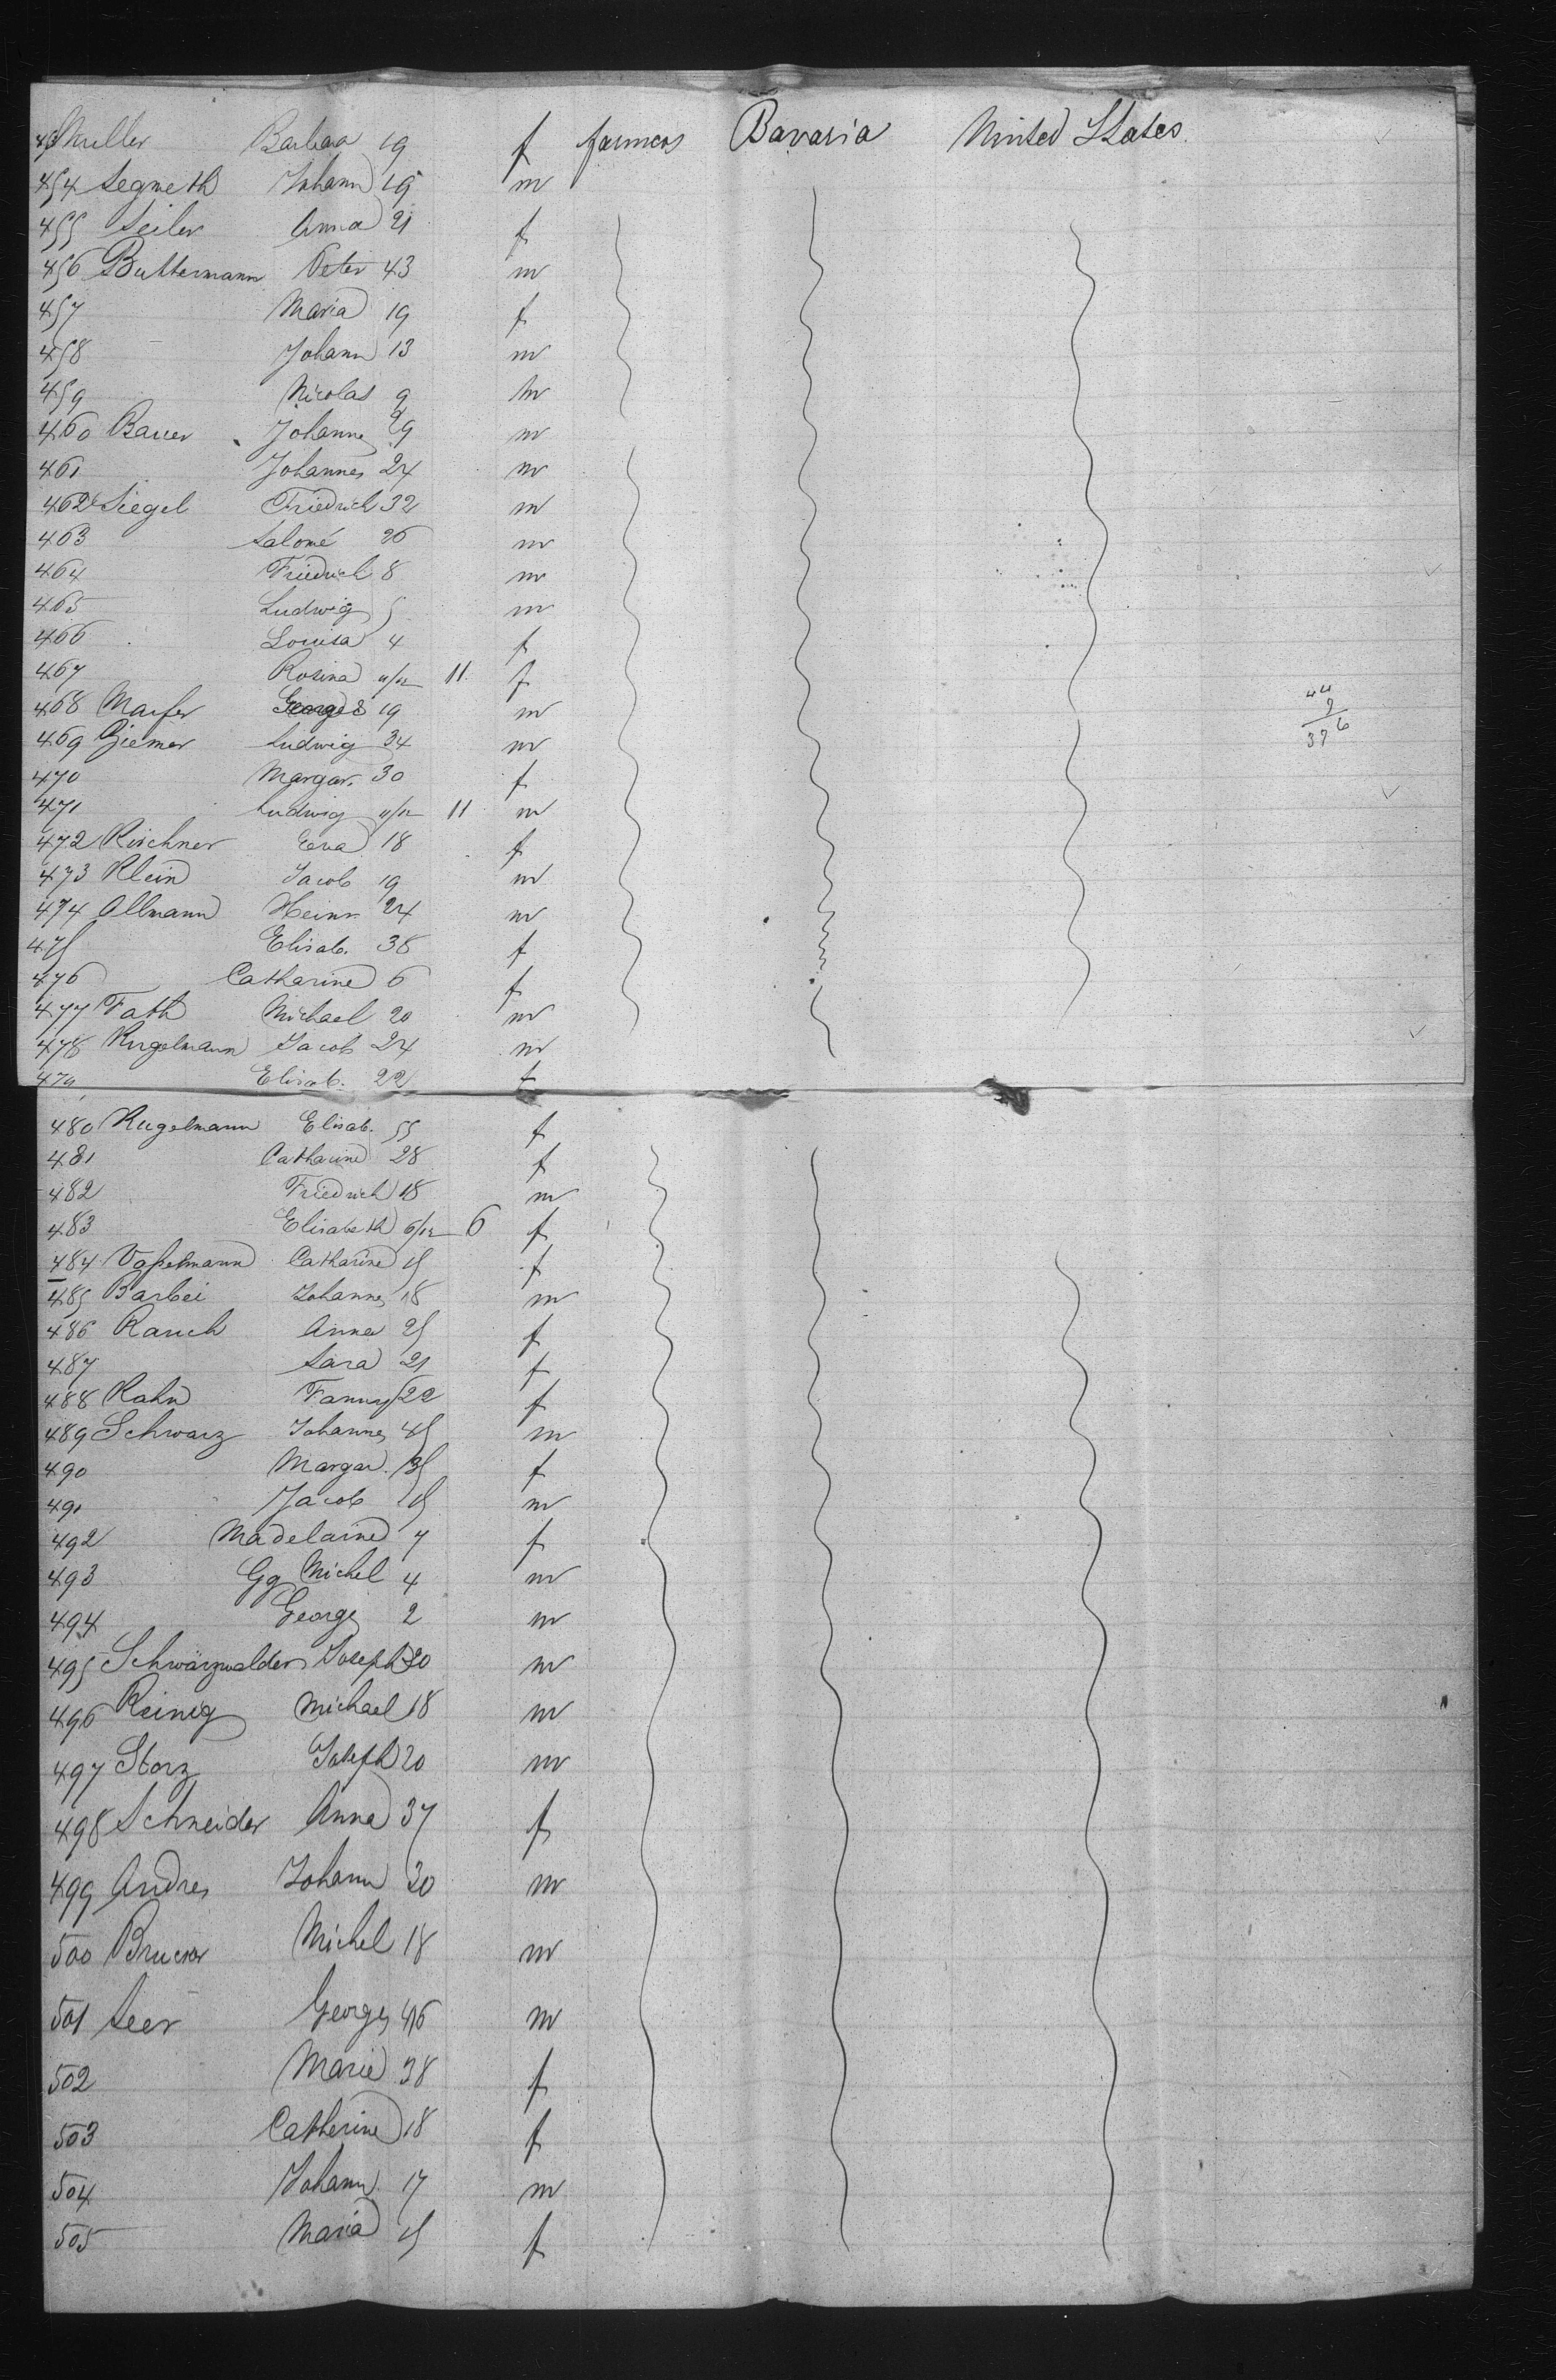 453 Muller Barbara 19 f farmers Bavaria United States
454 Segneth Johann 19 m
455 Seiler Anna 21 f
456 Buttermann Peter 43 m
457 Maria 19 f
458 Johann 13 m
459 Nicolas 9 m
460 Bauer Johannes 29 m
461 Johannes 24 m
462 Siegel Friedrich 32 m
463 Salomé 26 m
464 Friedrich 8 m
465 Ludwig 5 m
466 Louisa 4 f
467 Rosina 11/12 11 f
468 Georges 19 m
44
9
396
469 Ziemer Ludwig 34 m
470 Margar. 30 f
471 Ludwig 11/12 11 m
472 Kirchner Eva 18 f
473 Klein Jacob 19 m
474 Allmann Heinr. 24 m
475 Elisab. 38 f
476 Catharine 6 f
477 Fath Michael 20 m
478 Kugelmann Jacob 24 m
479 Elisab. 22 f
480 Kugelmann Elisab. 55 f
481 Catharine 28 f
482 Friedrich 18 m
483 Elisabeth 6/12 6 f
484 Voßelmann Catharine 15 f
485 Barbei Johannes 18 m
486 Rauch Anna 25 f
487 Sara 21 f
488 Kahn Fanny 22 f
489 Schwarz Johannes 45 m
490 Margar. 35 f
491 Jacob 15 m
492 Madelaine 7 f
493 Gg Michel 4 m
494 Georges 2 m
495 Schwärzwalder Joseph 20 m
496 Reinig Michael 18 m
497 Storz Joseph 20 m
498 Schneider Anna 37 f
499 Andres Johann 20 m
500 Brucker Michel 18 m
501 Seer Georges 46 m
502 Marie 38 f
503 Catherine 18 f
504 Johann 17 m
505 Maria 15 f